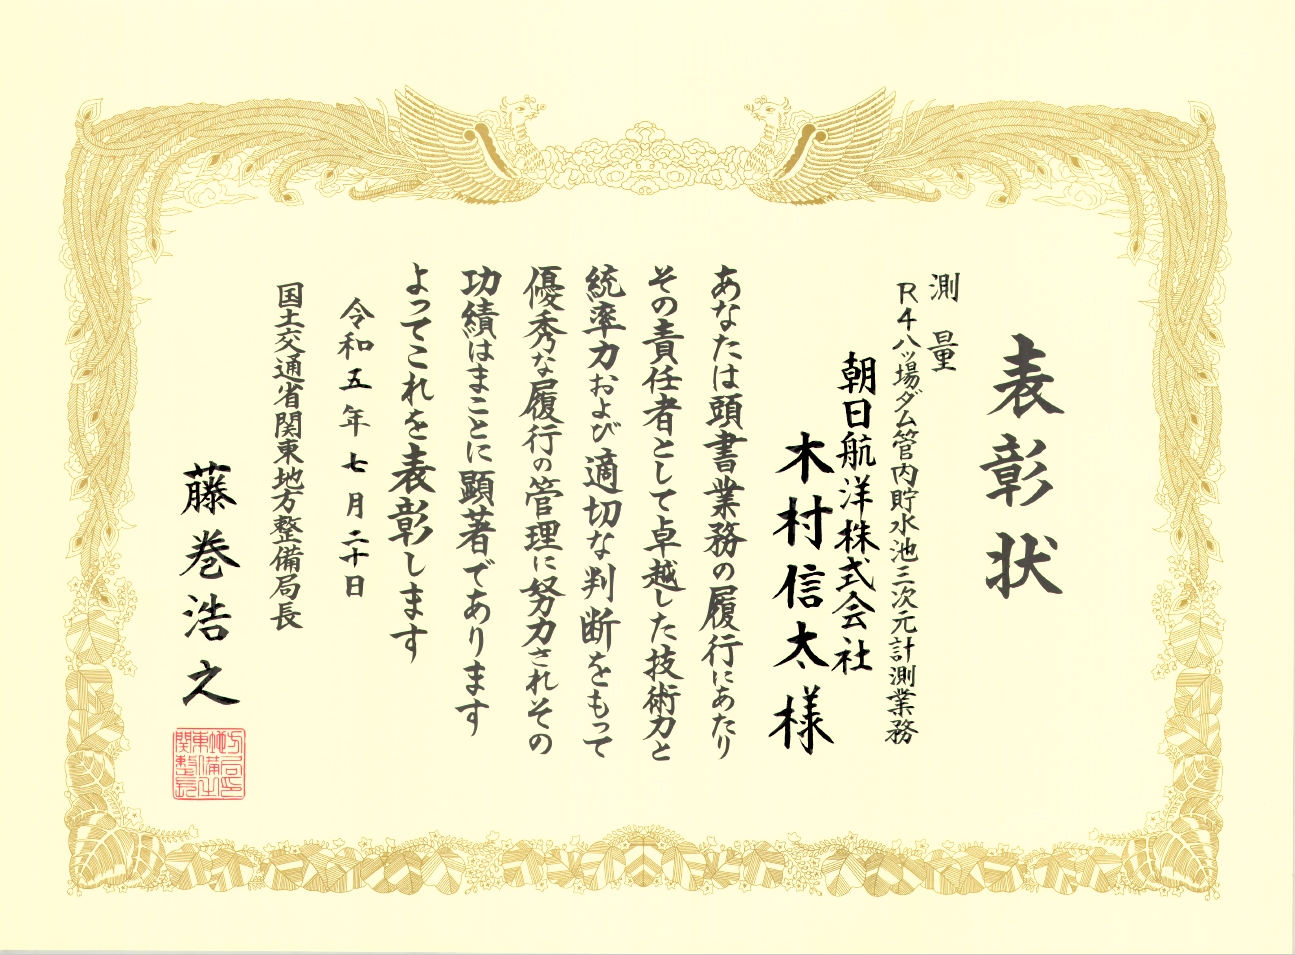 表彰状
測量
R4八ッ場ダム管内貯水池三次元計測業務
朝日航洋株式会社
木村信太様
あなたは頭書業務の履行にあたり
その責任者として卓越した技術力と
統率力および適切な判断をもって
優秀な履行の管理に努力されその
功績はまことに顕著であります
よってこれを表彰します
令和五年七月二十日
国土交通省関東地方整備局長
藤巻浩之